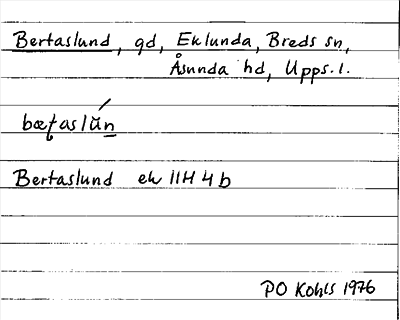 Bertaslund, gd, Eklunda, Breds sn,
Åsunda hd, Upps. l.
bæʈaslún̲
Bertaslund ek 11H 4 b
PO Kohls 1976